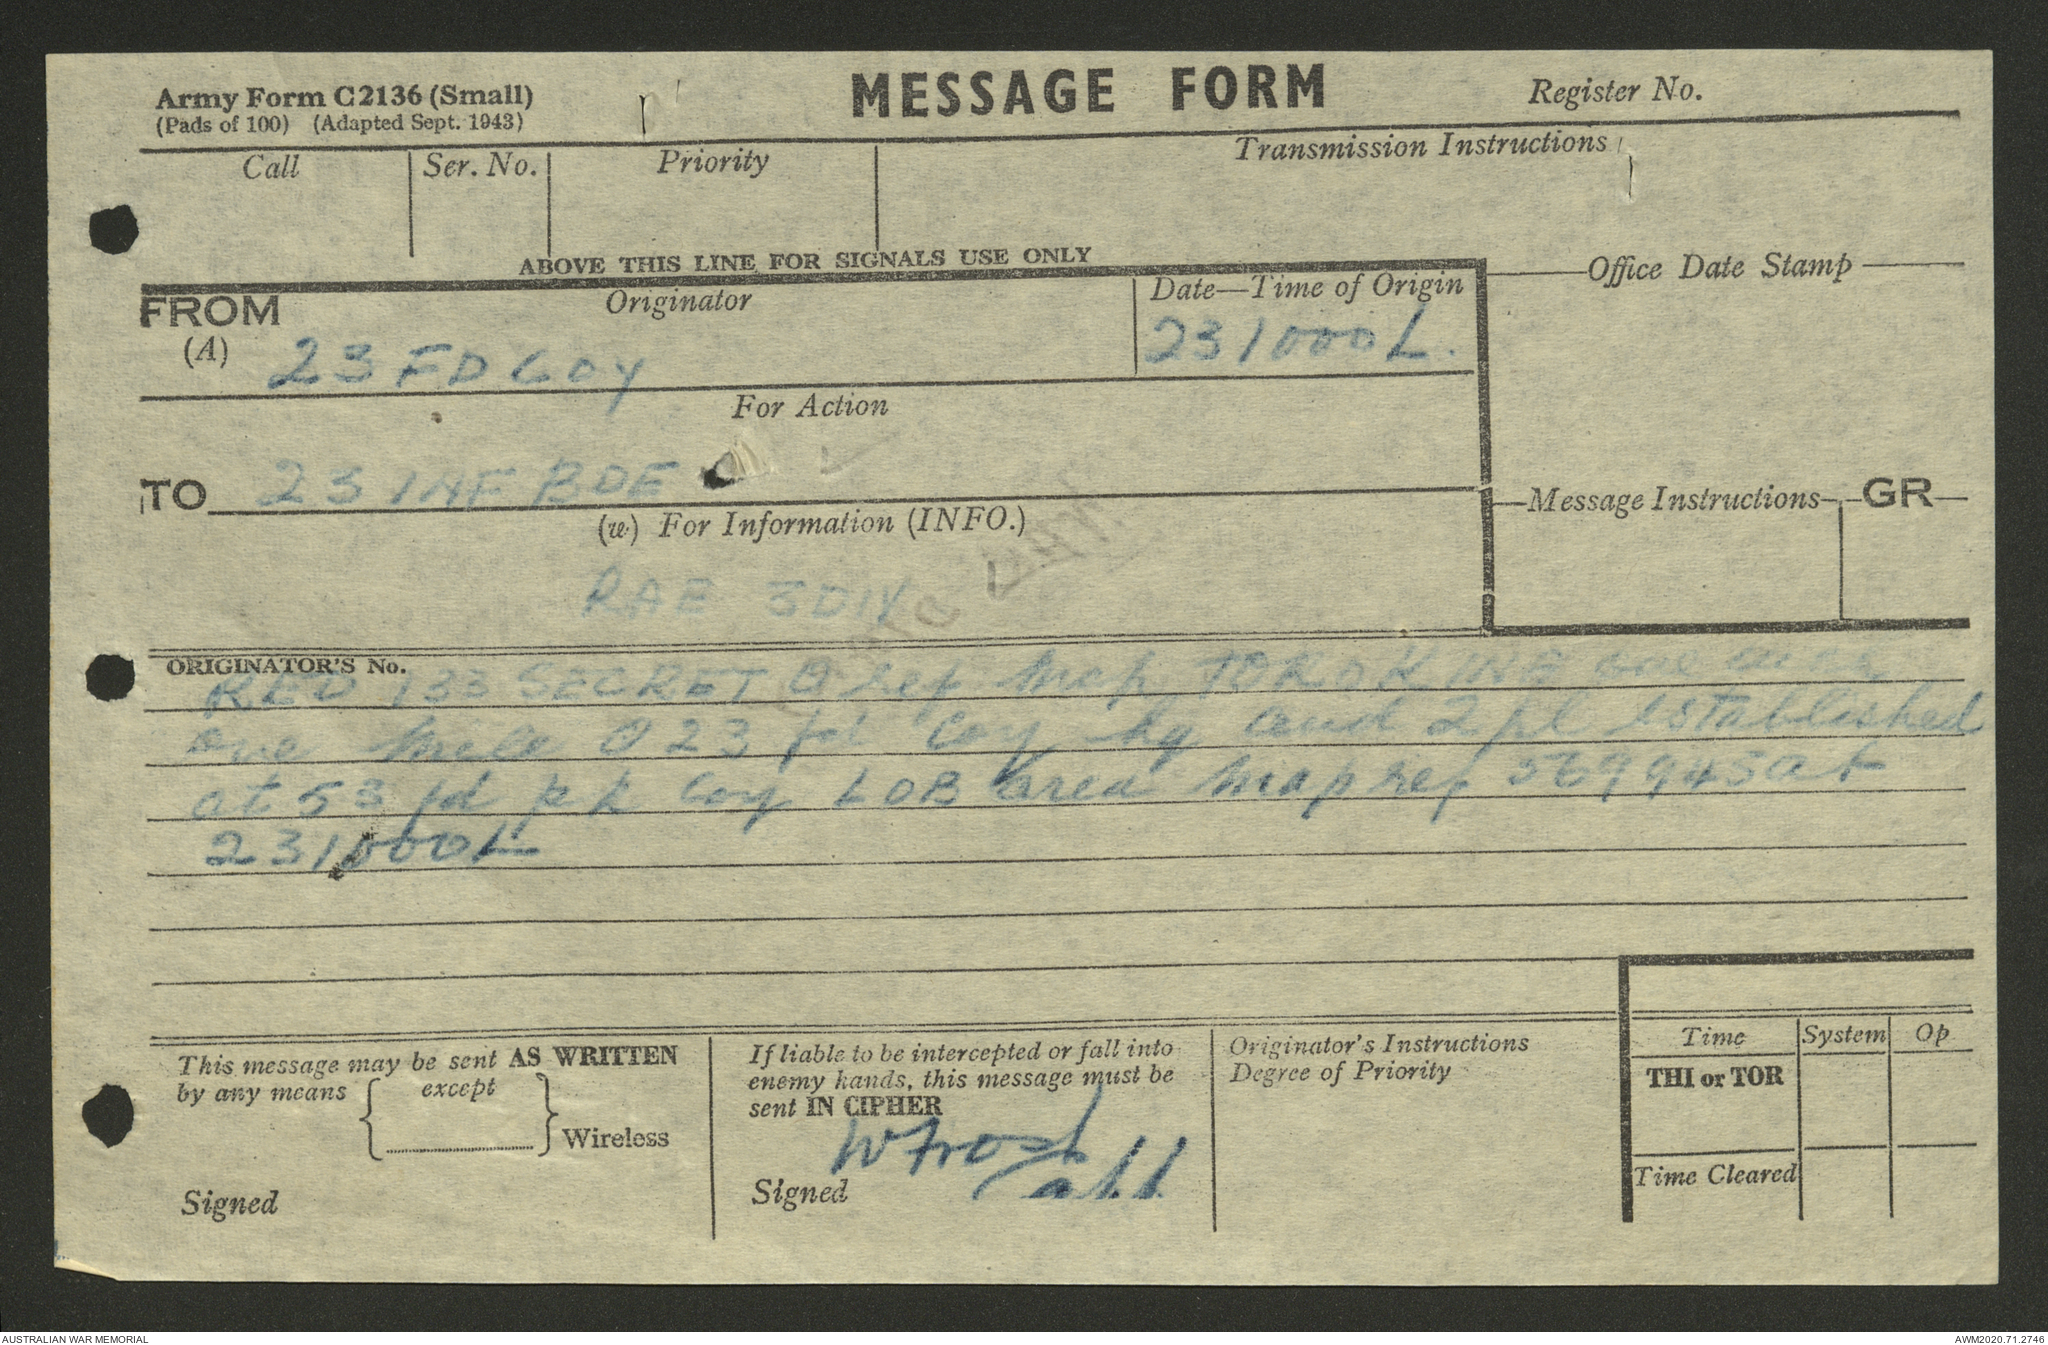 Army Form C2136 (Small)
(Pads of 100) (Adapted Sept. 1943)
MESSAGE FORM
Register No.
Call
Ser. No.
Priority
Transmission Instructions
ABOVE THIS LINE FOR SIGNALS USE ONLY
FROM
(A)
Originator
23 FD COY
Date—Time of Origin
231000L.
Office Date Stamp
For Action
TO
23 INF BDE
(w) For Information (INFO.)
RAE 3 DIV
Message Instructions
GR
ORIGINATOR'S No.
RED 133 SECRET O ref map TOROKINA one
one mile O 23 fd coy hq and 2 pl established
at 53 fd pk coy LOB area map ref 569943 at
231000L
This message may be sent AS WRITTEN
by any means except
Wireless
Signed
If liable to be intercepted or fall into
enemy hands, this message must be
sent IN CIPHER
WFrost
Signed
Originator's Instructions
Degree of Priority
Time
System
Op
THI or TOR
Time Cleared
AUSTRALIAN WAR MEMORIAL
AWM2020.71.2746